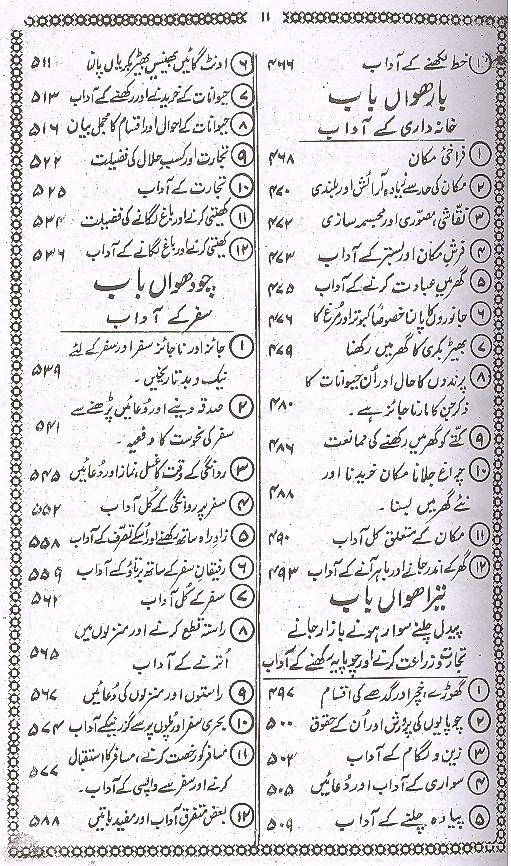 ۱۱
۱۰ خط لکھنے کے آداب ۴۶۶
بارھواں باب
خانہ داری کے آداب
۱ فراخئ مکان ۴۶۸
۲ مکان کی حد سے زیادہ آرائش اور بلندی ۴۷۰
۳ نقاشی، مصوری اور مجسمہ سازی ۴۷۲
۴ فرش مکان اور بستر کے آداب ۴۷۳
۵ گھر میں عبادت کرنے کے آداب ۴۷۵
۶ جانوروں کا پالنا خصوصًا کبوتر اور مرغ کا ۴۷۶
۷ بھیڑ بکری کا گھر میں رکھنا ۴۷۹
۸ پرندوں کا حال اور اُن حیوانات کا
ذکر جن کا مارنا جائز ہے۔ ۴۸۰
۹ کتے کو گھر میں رکھنے کی ممانعت ۴۸۶
۱۰ چراغ جلانا مکان خریدنا اور
نئے گھر میں بسنا۔ ۴۸۸
۱۱ مکان کے متعلق کل آداب ۴۹۰
۱۲ گھر کے اندر جانے اور باہر آنے کے آداب ۴۹۳
تیرا ھواں باب
پیدل چلنے سوار ہونے بازار جانے
تجارت و زراعت کرنے اور چوپایہ رکھنے کے آداب
۱ گھوڑے، خچر اور گدھے کی اقسام ۴۹۷
۲ چوپایوں کی پرورش اور اُن کے حقوق ۵۰۰
۳ زین و لگام کے آداب ۵۰۳
۴ سواری کے آداب اور دُعائیں ۵۰۵
۵ پیادہ چلنے کے آداب ۵۰۹
۶ اونٹ گائیں بھینس بھیڑ بکریاں پالنا ۵۱۱
۷ حیوانات کے خریدنے اور رکھنے کے آداب ۵۱۳
۸ حیوانات کے احوال اور اقسام کا مجمل بیان ۵۱۶
۹ تجارت اور کسب حلال کی فضیلت ۵۲۲
۱۰ تجارت کے آداب ۵۲۵
۱۱ کھیتی کرنے اور باغ لگانے کی فضیلت ۵۳۴
۱۲ کھیتی کرنے اور باغ لگانے کے آداب ۵۳۶
چودھواں باب
سفر کے آداب
۱ جائز اور ناجائز سفر اور سفر کے لئے
نیک و بد تاریخیں۔ ۵۳۹
۲ صدقہ دینے اور دعائیں پڑھنے سے
سفر کی نحوست کا دفعیہ۔ ۵۴۱
۳ روانگی کے وقت کا غسل، نماز اور دُعائیں ۵۴۵
۴ سفر پر روانگی کے کُل آداب ۵۵۲
۵ زادِ راہ ساتھ رکھنے اور اسکے تصرف کے آداب ۵۵۸
۶ رفیقانِ سفر کے ساتھ برتاؤ کے آداب ۵۵۹
۷ سفر کے کُل آداب ۵۶۲
۸ راستہ قطع کرنے اور منزلوں میں
اُترنے کے آداب ۵۶۵
۹ راستوں اور منزلوں کی دُعائیں ۵۶۷
۱۰ بحری سفر اور پلوں پر سے گزرنیکے آداب ۵۷۴
۱۱ مسافر کو رخصت کرنے، مسافر کا استقبال
کرنے اور سفر سے واپسی کے آداب۔ ۵۷۷
۱۲ بعض متفرق آداب اور مفید باتیں ۵۸۸